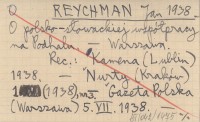 O REYCHMAN Jan 1938.
O polsko-słowackiej współpracy
na Podhalu. — Warszawa.
Rec.: Kamena (Lublin)
1938. — Nurty (Kraków)
(1938), nr 3. Gazeta Polska
(Warszawa) 5. VII. 1938. —